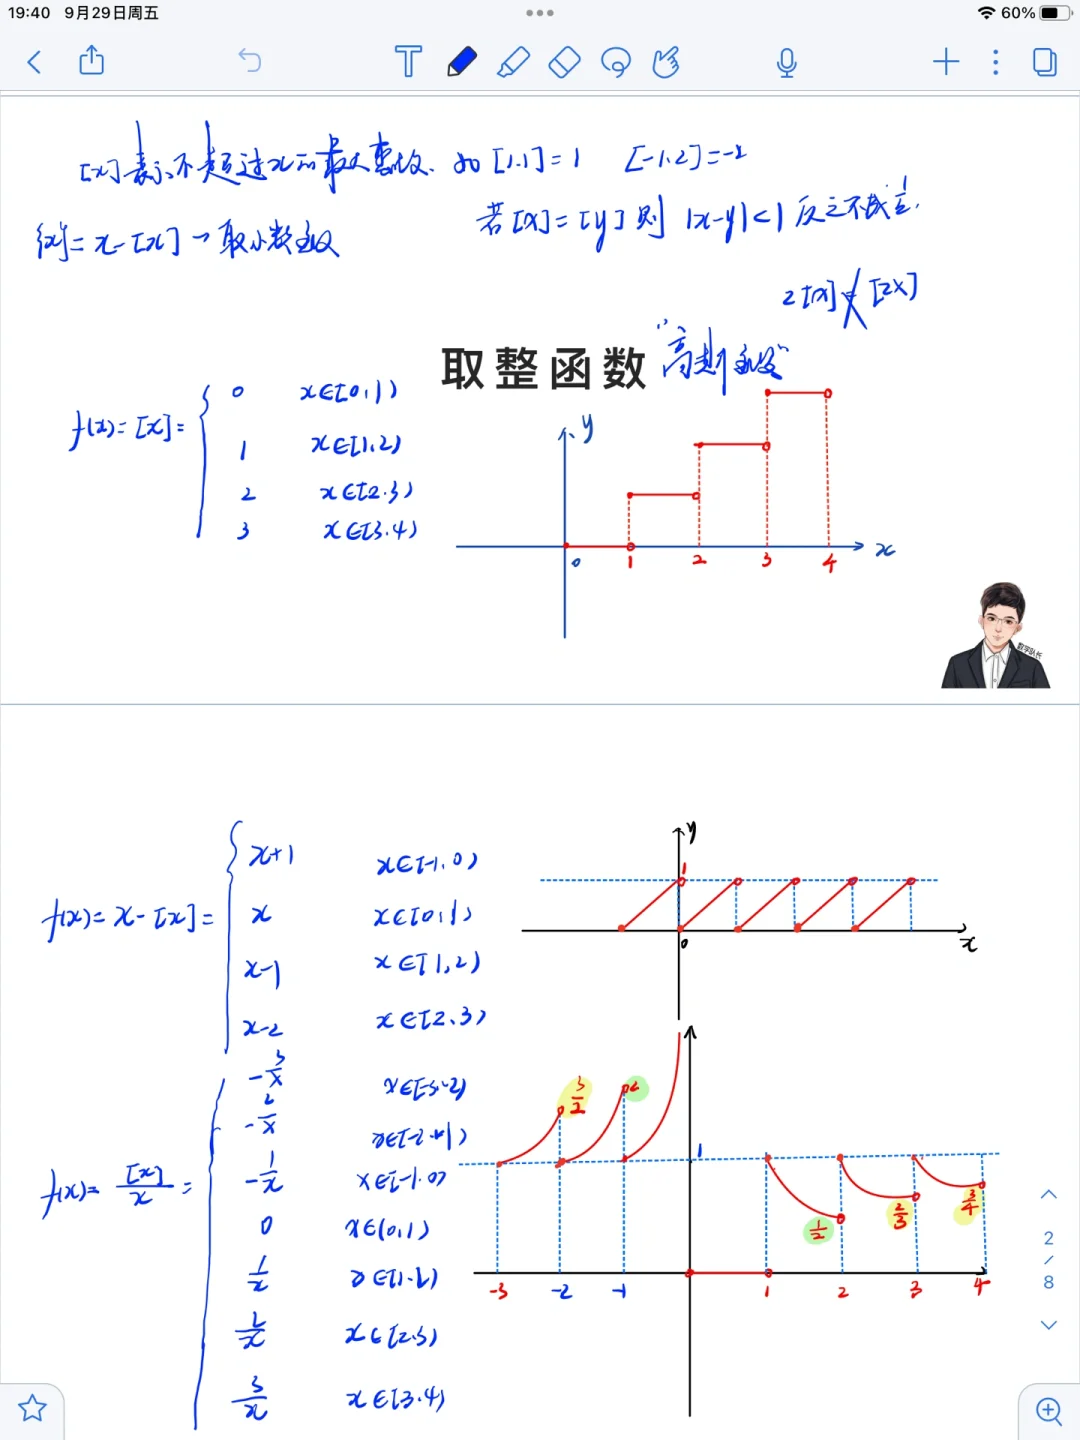 19:40 9月29日周五
60%
[x]表示不超过x的最大整数. 如[1.1]=1 [-1.2]=-2
若[x]=[y]则 |x-y|<1 反之不成立.
{x}=x-[x]→取小数函数
2[x]≠[2x]
取整函数 "高斯函数"
f(x)=[x]=
0 x∈[0,1)
1 x∈[1,2)
2 x∈[2.3)
3 x∈[3.4)
y
x
0 1 2 3 4
数学队长
f(x)=x-[x]=
x+1 x∈[-1,0)
x x∈[0,1)
x-1 x∈[1,2)
x-2 x∈[2.3)
y
1
0
x
f(x)=[x]/x=
-3/x x∈[-3.-2)
-2/x x∈[-2.-1)
-1/x x∈[-1.0)
0 x∈(0,1)
1/x x∈[1.2)
2/x x∈[2.3)
3/x x∈[3.4)
3/2 2
1
1/2 2/3 3/4
-3 -2 -1 1 2 3 4
2
/
8